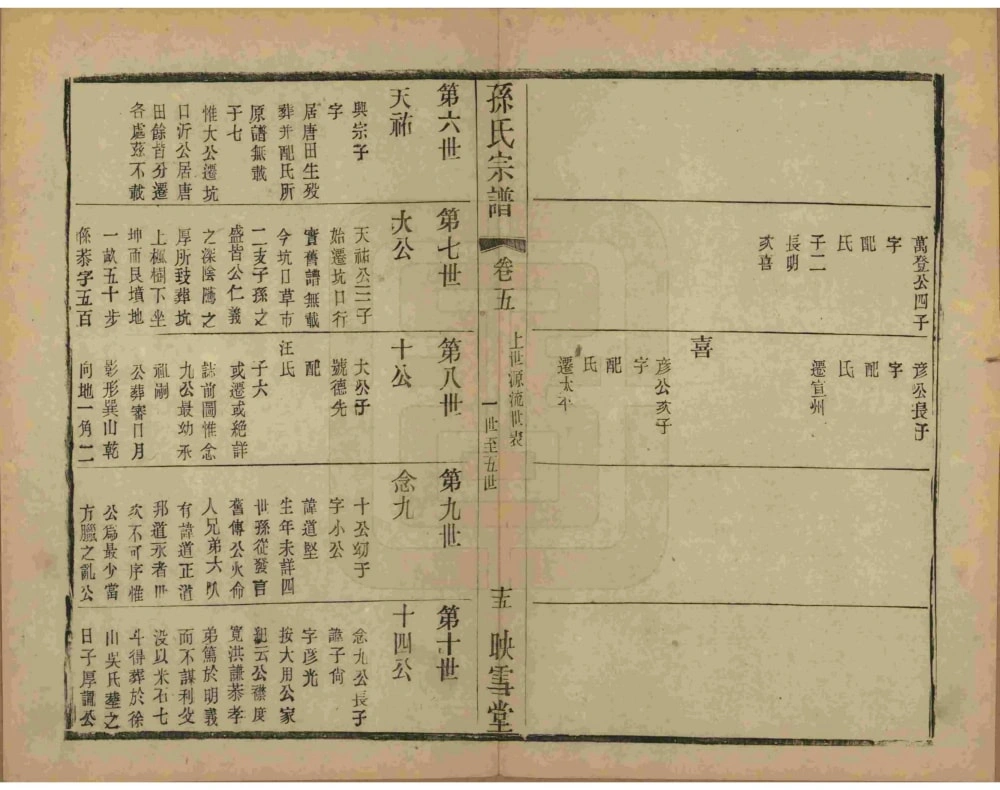 萬登公四子
字
配
氏
子二
長明
次喜
彦公長子
字
配
氏
遷宣州
喜
彦公次子
字
配
氏
遷太平
孫氏宗譜
卷五
上世源流世表
一世至五世
十五
映雪堂
第六世
天祐
興宗子
字
居唐田生歿
葬并配氏所
原譜無載
子七
惟大公遷坑
口沂公居唐
田餘皆分遷
各處茲不載
第七世
大公
天祐公三子
始遷坑口行
實舊譜無載
今坑口草市
二支子孫之
盛皆公仁義
之深陰隲之
厚所致葬坑
上楓樹下坐
坤向艮墳地
一畝五十步
係恭字五百
第八世
十公
大公子
號德先
配
汪氏
子六
或遷或絶詳
誌前圖惟念
九公最幼承
祖嗣
公葬審日月
影形巽山乾
向地一角二
第九世
念九
十公幼子
字小公
諱道堅
生年未詳四
世孫從發言
舊傳公火命
人兄弟六人
有諱道正道
邦道永者世
次不可序惟
公爲最少當
方臘之亂公
第十世
十四公
念九公長子
諱子尙
字彦光
按大用公家
狀云公襟度
寬洪謙恭孝
弟篤於明義
而不謀利父
没以米石七
斗得葬於徐
山吳氏塟之
日子厚謂公